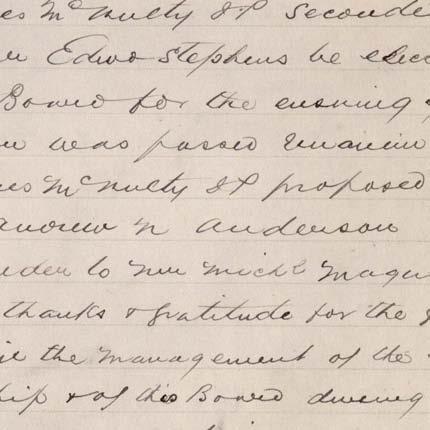 es McNulty JP seconde
Edwd Stephens be elec
Board for the ensuing
was passed unanim
es McNulty JP proposed
Andrew N Anderson
nder to Mr Michl Magu
thanks & gratitude for the
the management of the
hip & of this Board during